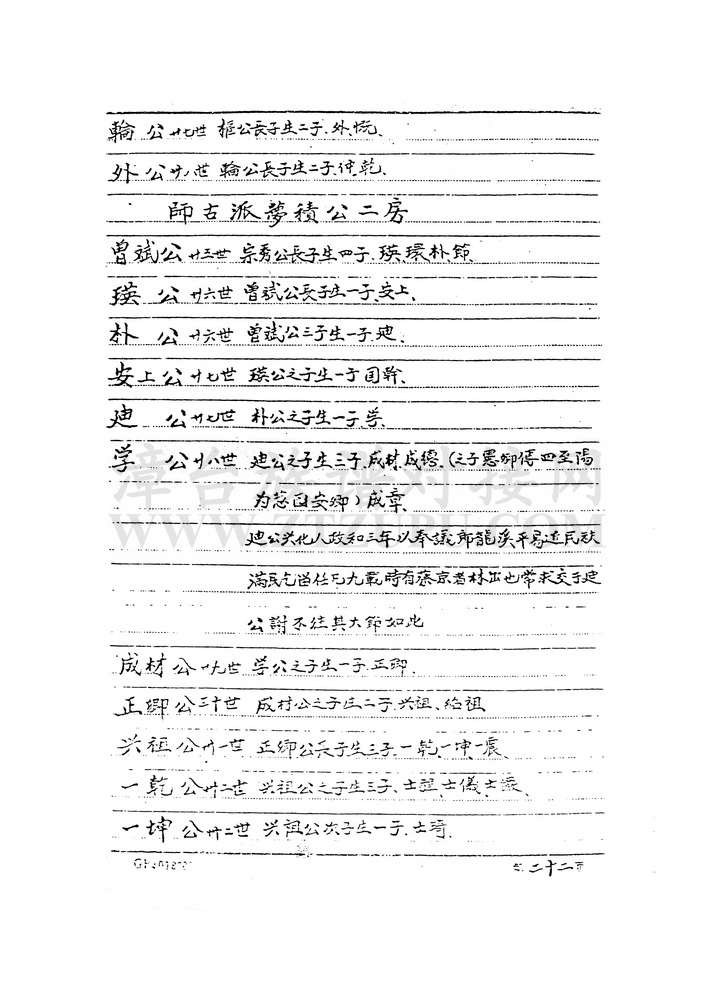 輪公廿七世 樞公長子生二子、外恍、
外公廿九世 輪公長子生二子、仲乾、
師古派夢積公二房
曾斌公廿三世 宗秀公長子生四子、瑛環朴節
瑛公廿六世 曾斌公長子生一子、安上、
朴公廿六世 曾斌公三子生一子、廸、
安上公廿七世 瑛公之子生一子、国幹、
廸公廿七世 朴公之子生一子、学、
学公廿八世 廸公之子生三子、成材、成德、(之子 卿傳四至陽
为 安卿)成章、
廸公兴化人政和三年以奉議郎龍溪平易近民秩
滿民乞留任凡九載時有蔡京者 也常求交于廸
公謝不往其大節如此
成材公廿九世 学公之子生一子、正卿、
正卿公三十世 成材公之子生二子、兴祖、绍祖
兴祖公廿一世 正卿公長子生三子、一乾、一坤一震、
一乾公廿二世 兴祖公之子生三子、士 士儀士
一坤公廿二世 兴祖公次子生一子、士琦、
二十二页
漳台族谱对接网
WWW.ZTZUPU.COM